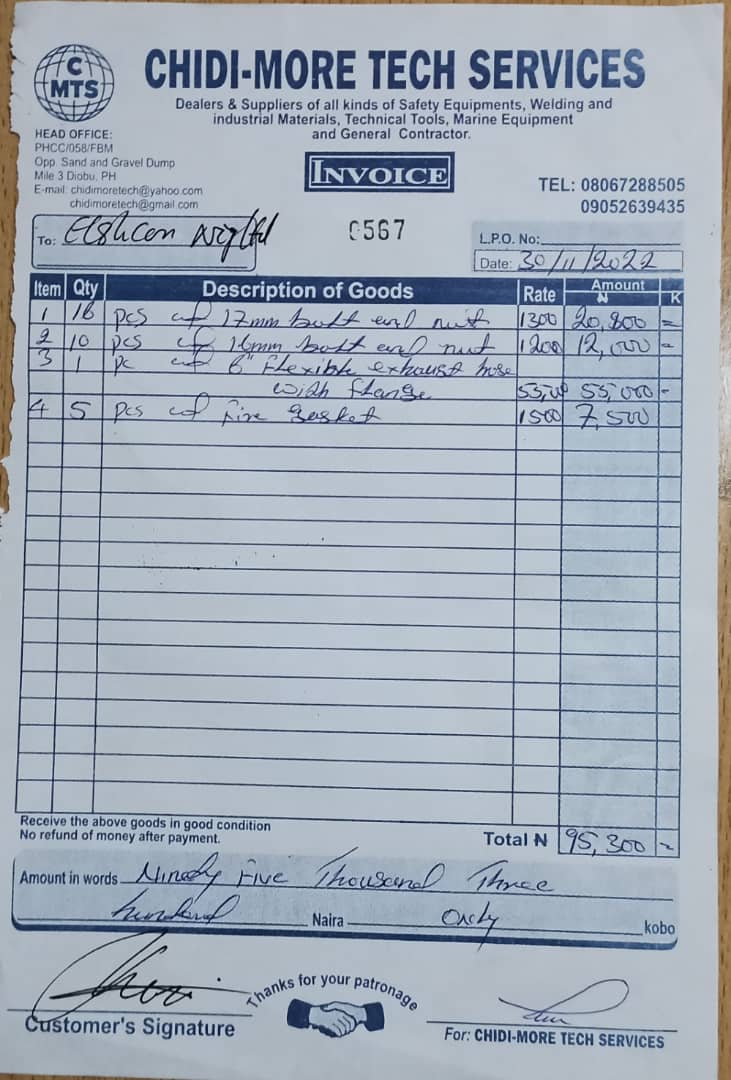 C
MTS
CHIDI-MORE TECH SERVICES
Dealers & Suppliers of all kinds of Safety Equipments, Welding and
industrial Materials, Technical Tools, Marine Equipment
and General Contractor.
HEAD OFFICE:
PHCC/058/FBM
Opp. Sand and Gravel Dump
Mile 3 Diobu, PH
E-mail: chidimoretech@yahoo.com
chidimoretech@gmail.com
INVOICE
TEL: 08067288505
09052639435
To: Elshcon Nig Ltd
0567
L.P.O. No:
Date: 30/11/2022
Item Qty Description of Goods Rate Amount ₦ K
1 16 pcs of 17mm bolt and nut 1300 20,800 =
2 10 pcs of 16mm bolt and nut 1200 12,000 =
3 1 pc of 6" Flexible exhaust hose
with flange 55,000 55,000 -
4 5 pcs of fire gasket 1500 7,500
Receive the above goods in good condition
No refund of money after payment.
Total ₦ 95,300 =
Amount in words Ninety Five Thousand Three
hundred Naira Only kobo
Thanks for your patronage
Customer's Signature
For: CHIDI-MORE TECH SERVICES